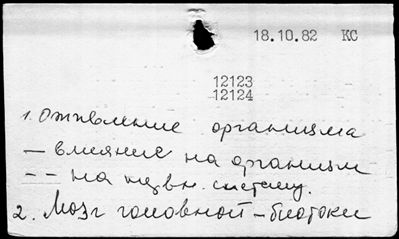 18.10.82 КС
12123
12124
1. Оживление организма
— влияние на организм
— — на нервн. систему.
2. Мозг головной — биотоки